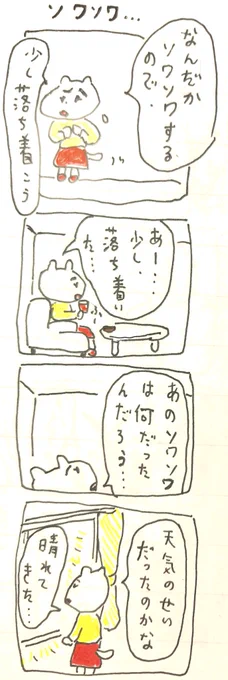 ソワソワ…
なんだか
ソワソワする
ので、
少し落ち着こう
あー…
少し、
落ち着い
た…
ふぅ
あのソワソワ
は何だった
んだろう…
天気のせい
だったのかな
晴れて
きた…